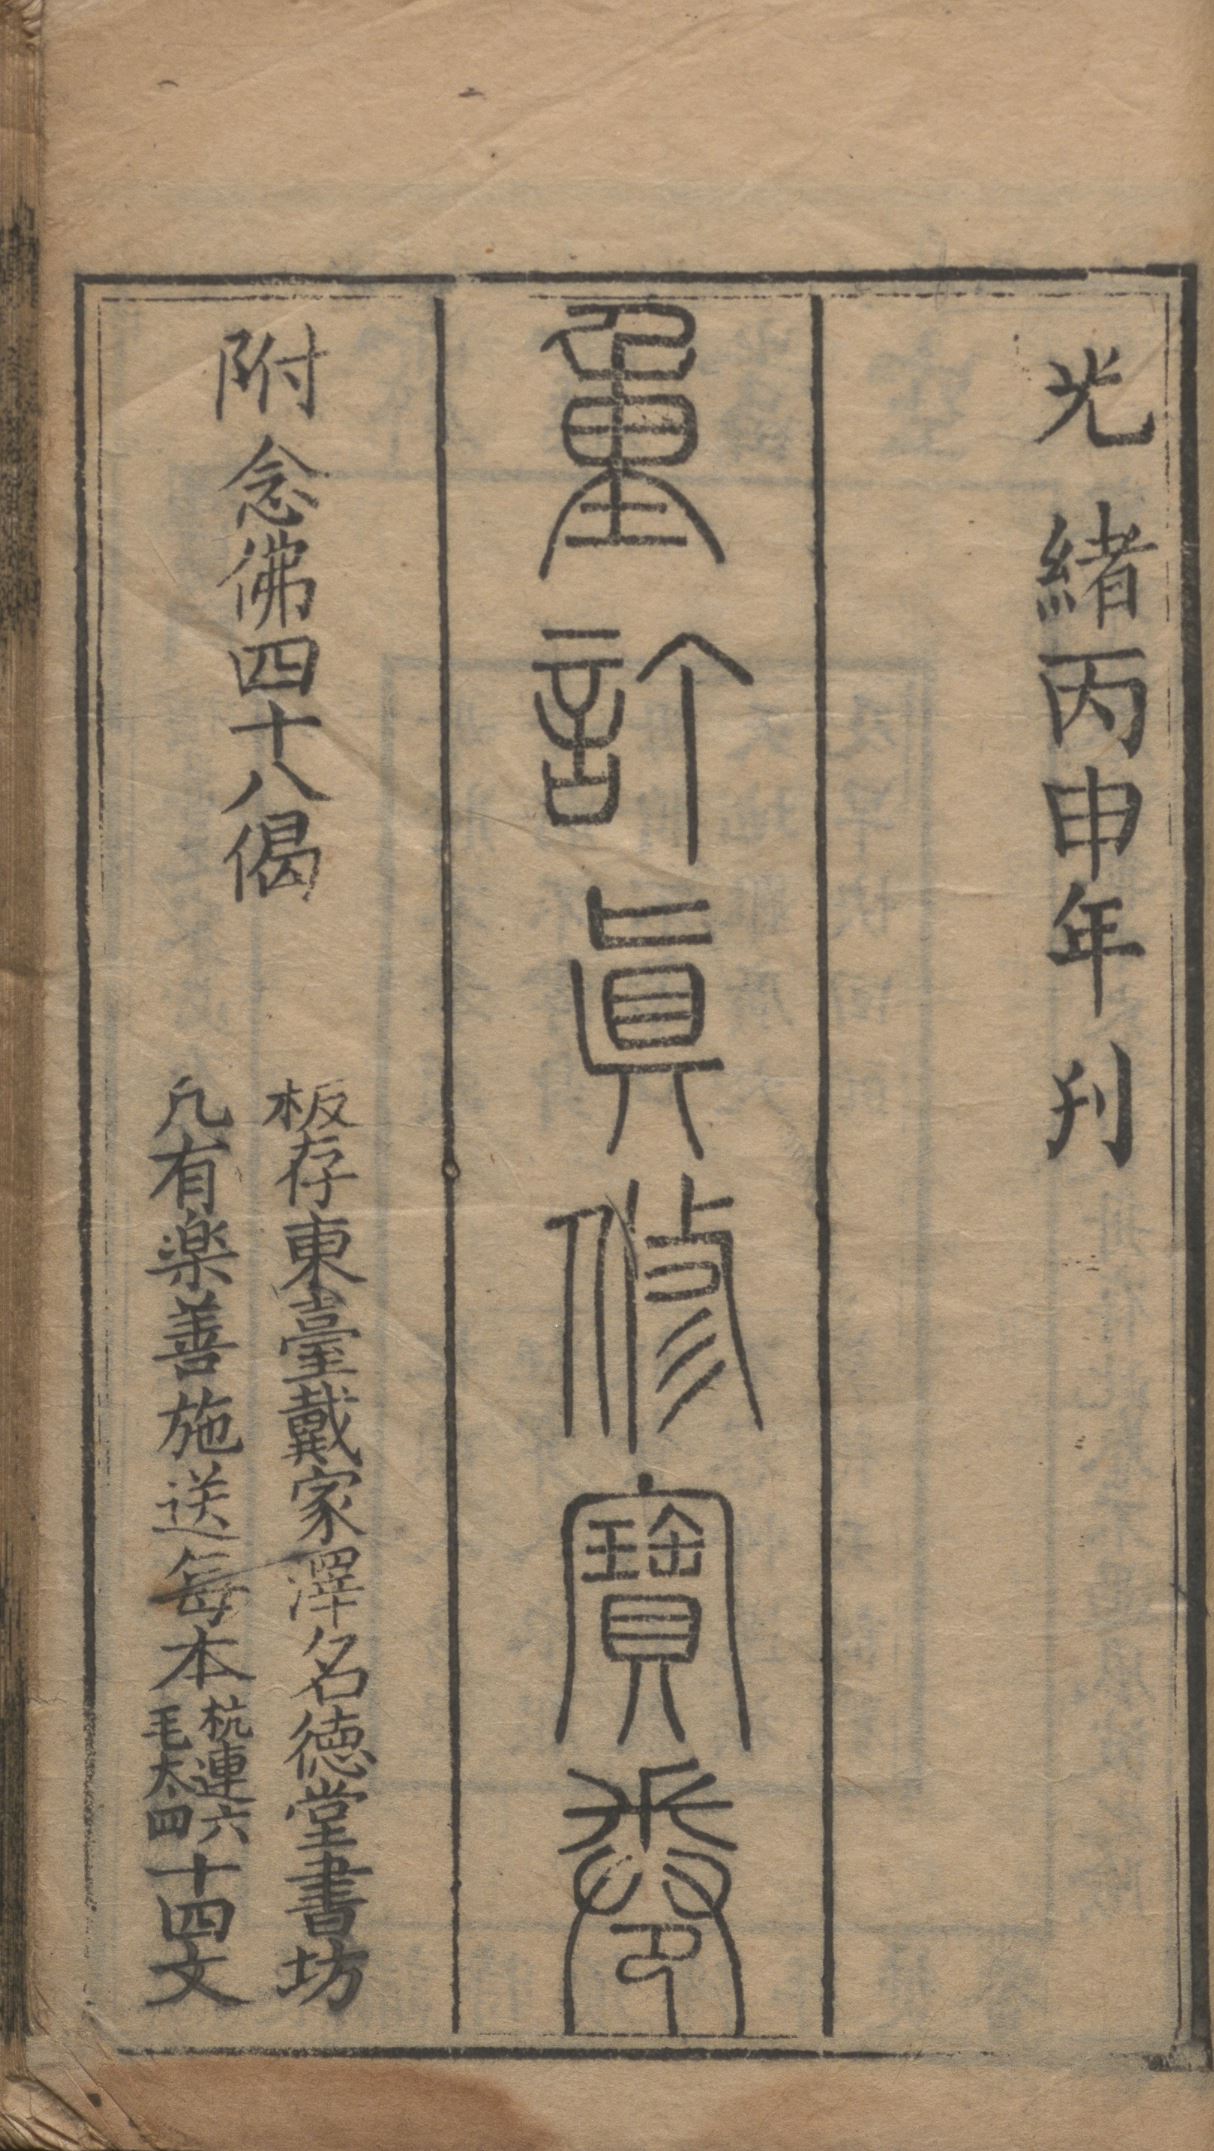 光緒丙申年刊
重訂眞修寶卷
附念佛四十八偈
板存東臺戴家澤名德堂書坊
凡有楽善施送每本杭連六毛太四十四文